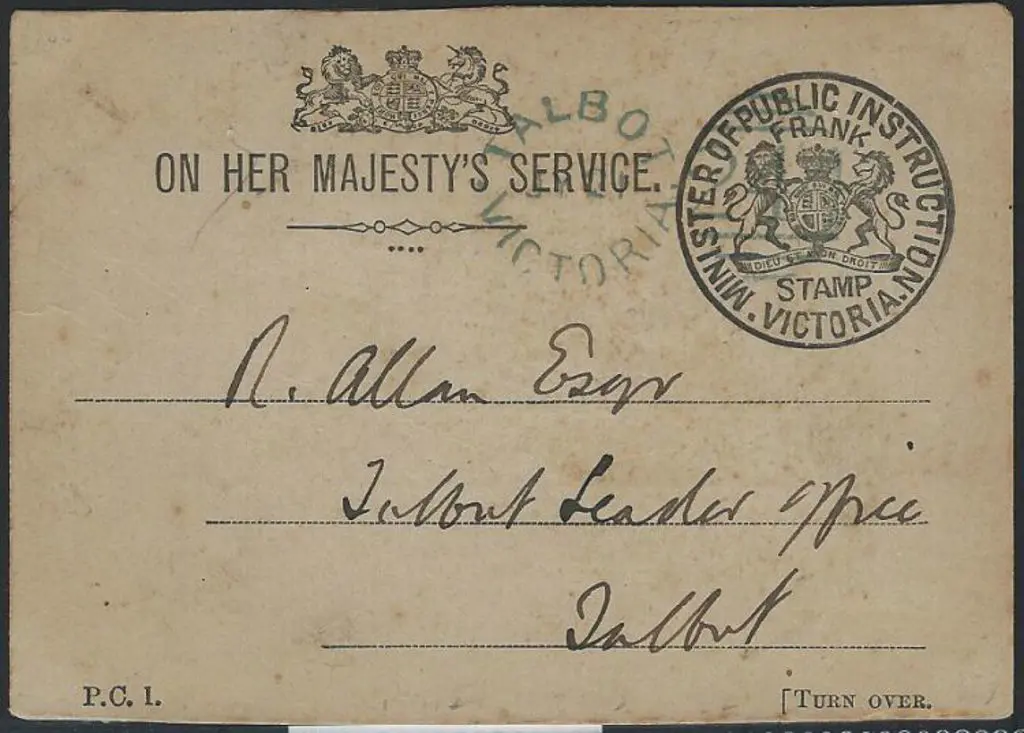 ON HER MAJESTY'S SERVICE.
TALBOT
VICTORIA
MINISTER OF PUBLIC INSTRUCTION
FRANK
DIEU ET MON DROIT
STAMP
VICTORIA.
R. Allan Esqr
Talbot Leader Office
Talbot
P.C. 1.
[TURN OVER.